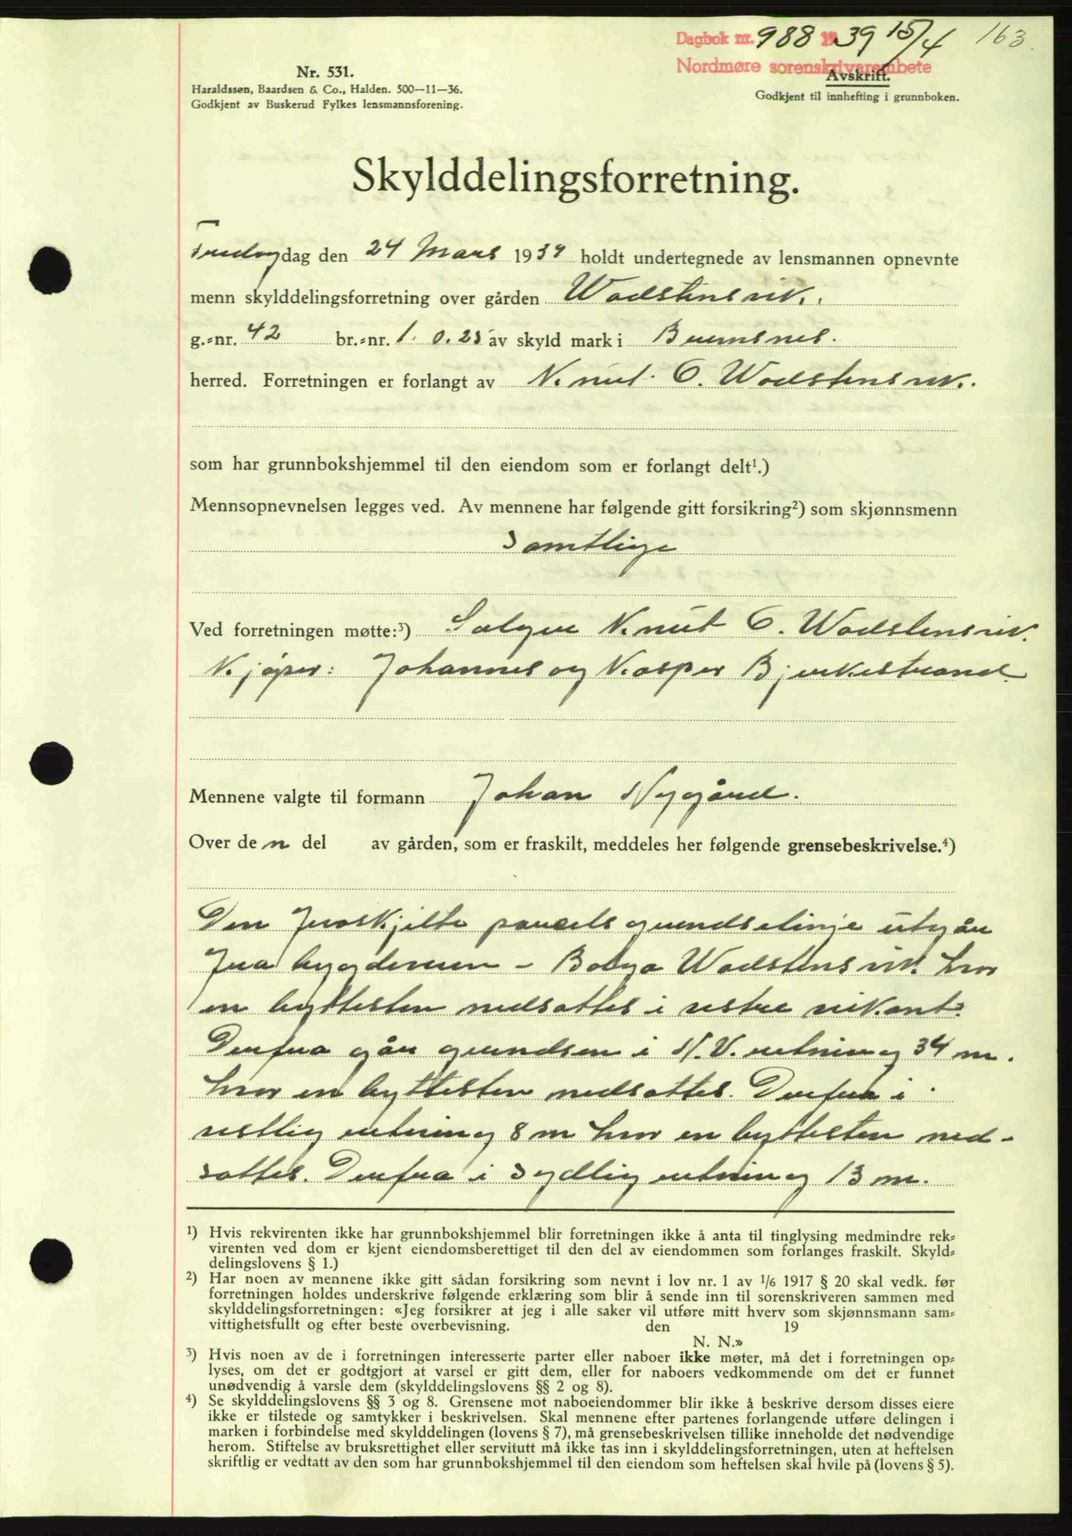 Dagbok nr. 988 19 39 15/4 163.
Nordmøre sorenskrivarembete
Avskrift.
Godkjent til innhefting i grunnboken.
Nr. 531.
Haraldssøn, Baardsen & Co., Halden. 500—11—36.
Godkjent av Buskerud Fylkes lensmannsforening.
Skylddelingsforretning.
Fredag dag den 24 Mars 1939 holdt undertegnede av lensmannen opnevnte
menn skylddelingsforretning over gården Wadstensvik.
g.-nr. 42 br.-nr. 1. 0.25 av skyld mark i Bremsnes.
herred. Forretningen er forlangt av Knut O. Wadstensvik.
som har grunnbokshjemmel til den eiendom som er forlangt delt¹.)
Mennsopnevnelsen legges ved. Av mennene har følgende gitt forsikring²) som skjønnsmenn
Samtlige
Ved forretningen møtte:³) Selger Knut O. Wadstensvik.
Kjøper: Johannes og Kasper Bjerkestrand.
Mennene valgte til formann Johan Nygård.
Over den del av gården, som er fraskilt, meddeles her følgende grensebeskrivelse.⁴)
Den fraskjilte parcels grendselinje utgår
fra bygdeveien - Bolga Wadstensvik. hvor
en byttesten nedsattes i vestre veikant.
Derfra går grendsen i N.V. retning 34 m.
hvor en byttesten nedsattes. Derfra i
vestlig retning 8 m hvor en byttesten ned-
sattes. Derfra i sydlig retning 13 m.
¹) Hvis rekvirenten ikke har grunnbokshjemmel blir forretningen ikke å anta til tinglysing medmindre rek-
virenten ved dom er kjent eiendomsberettiget til den del av eiendommen som forlanges fraskilt. Skyld-
delingslovens § 1.)
²) Har noen av mennene ikke gitt sådan forsikring som nevnt i lov nr. 1 av 1/6 1917 § 20 skal vedk. før
forretningen holdes underskrive følgende erklæring som blir å sende inn til sorenskriveren sammen med
skylddelingsforretningen: «Jeg forsikrer at jeg i alle saker vil utføre mitt hverv som skjønnsmann sam-
vittighetsfullt og efter beste overbevisning. den 19
N. N.»
³) Hvis noen av de i forretningen interesserte parter eller naboer ikke møter, må det i forretningen op-
lyses, om det er godtgjort at varsel er gitt dem, eller for naboers vedkommende om det er funnet
unødvendig å varsle dem (skylddelingslovens §§ 2 og 8).
⁴) Se skylddelingslovens §§ 3 og 8. Grensene mot naboeiendommer blir ikke å beskrive dersom disses eiere
ikke er tilstede og samtykker i beskrivelsen. Skal mennene efter partenes forlangende utføre delingen i
marken i forbindelse med skylddelingen (lovens § 7), må grensebeskrivelsen tillike inneholde det nødvendige
herom. Stiftelse av bruksrettighet eller servitutt må ikke tas inn i skylddelingsforretningen, uten at heftelsen
skriftlig er vedtatt av den som har grunnbokshjemmel til den eiendom som heftelsen skal hvile på (lovens § 5).